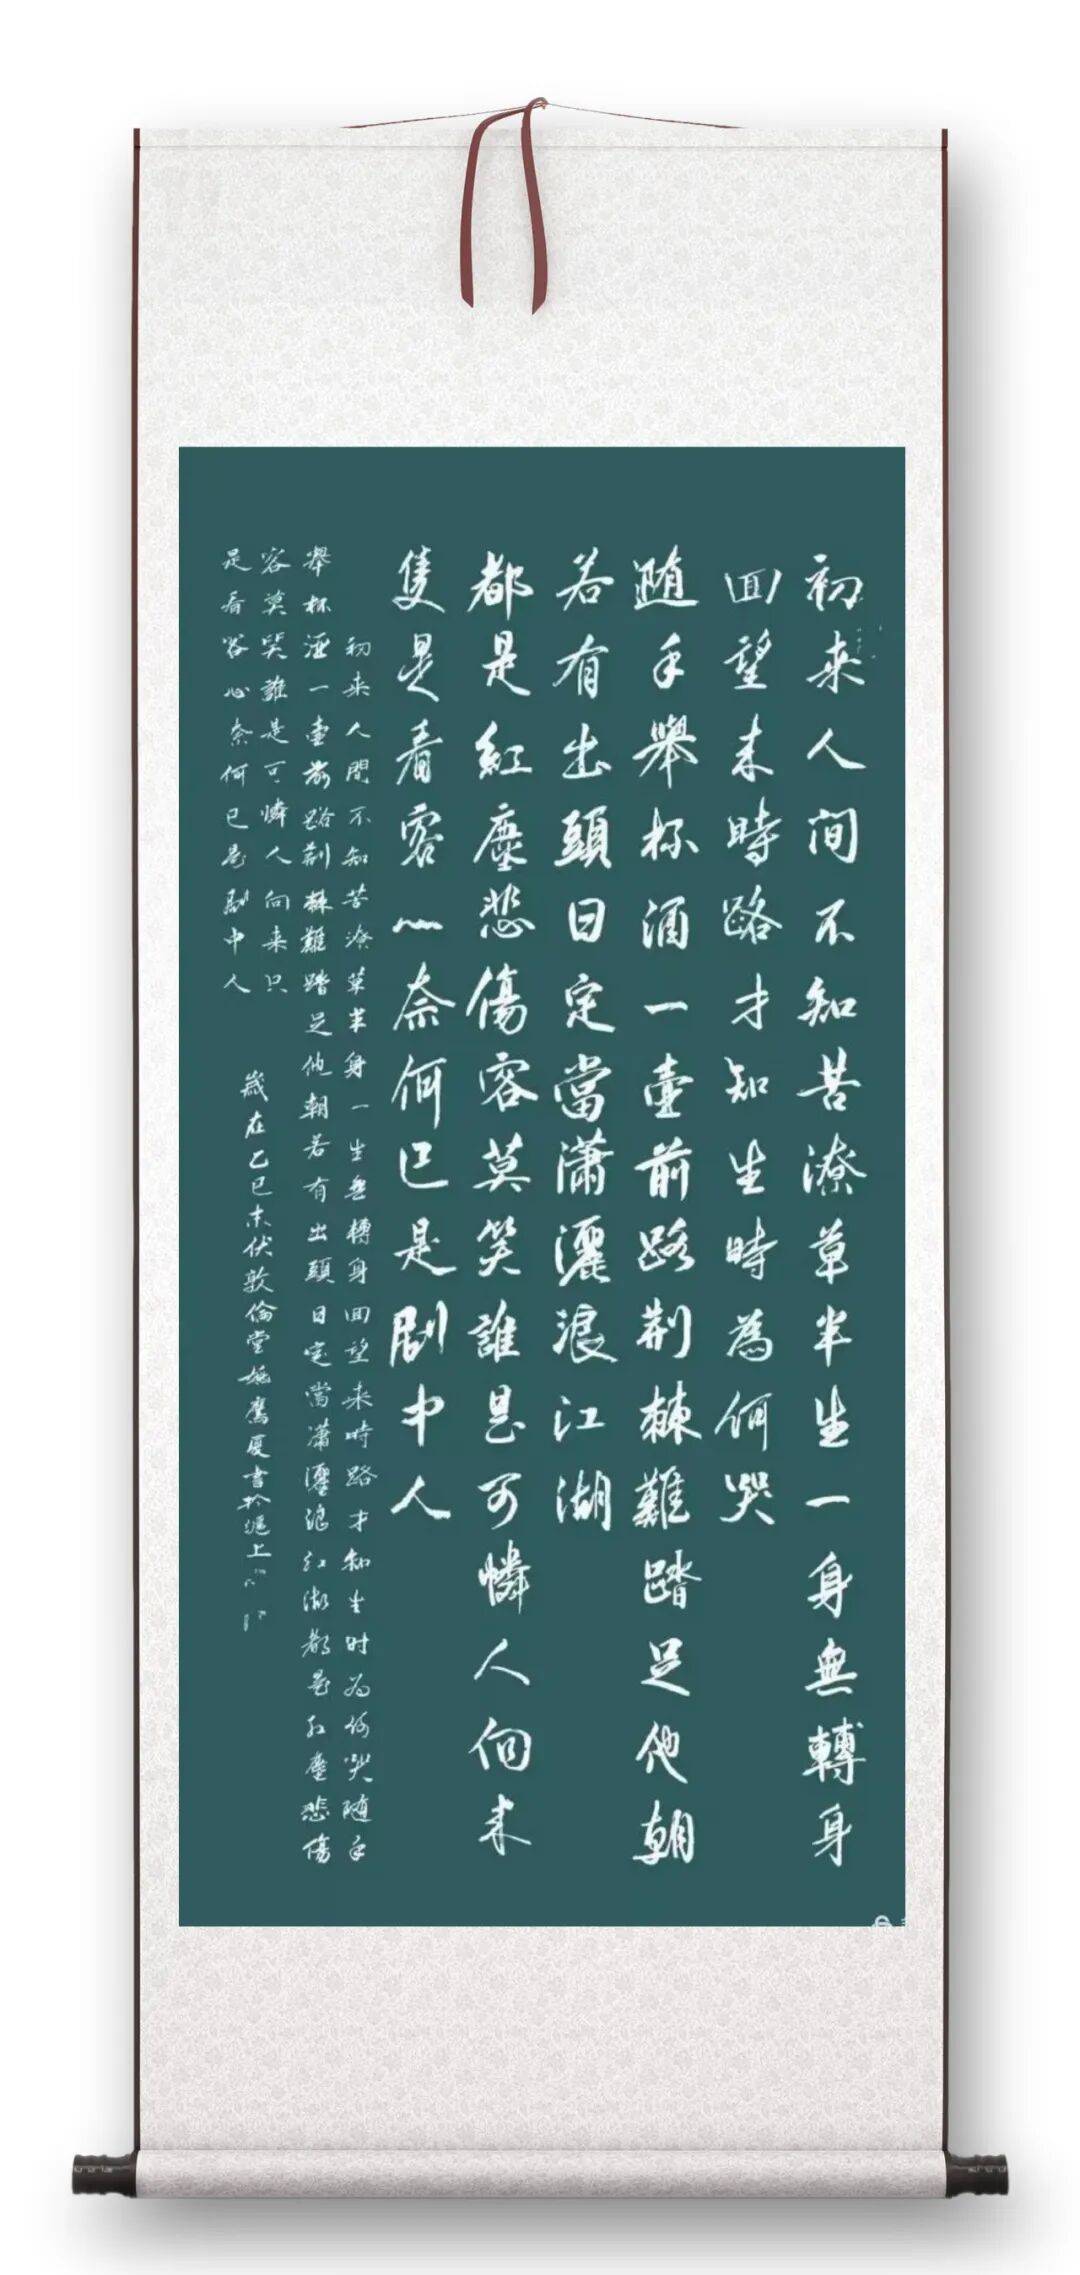 初来人间不知苦潦草半生一身無轉身
回望来時路才知生時為何哭
随手舉杯酒一壺前路荆棘難踏足他朝
若有出頭日定當瀟灑浪江湖
都是紅塵悲傷容莫笑誰是可憐人向来
隻是看客心奈何已是剧中人
初来人間不知苦潦草半身一生無轉身回望来時路才知生时为何哭随手
舉杯酒一壺前路荆棘難踏足他朝若有出頭日定當瀟灑浪江湖都是红塵悲傷
容莫笑誰是可憐人向来只
是看客心奈何已是剧中人
歲在乙巳末伏敦倫堂書於滬上